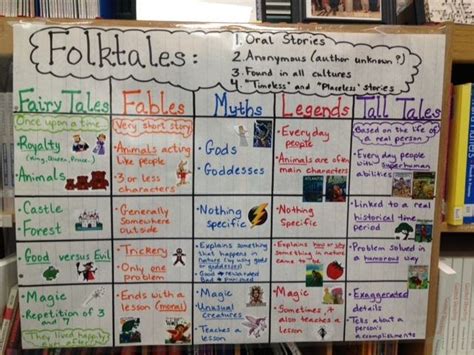 Folktales:
1. Oral Stories
2. Anonymous (author unknown?)
3. Found in all cultures
4. "Timeless" and "Placeless" stories
Fairy Tales
Fables
Myths
Legends
Tall Tales
Once upon a time
• Royalty
(King, Queen, Prince..)
• Animals
Very short story
• Animals acting
like people
• 3 or less
characters
• Gods
• Goddesses
• Everyday
people
• Animals are often
main characters
Based on the life of
a real person
• Everyday people
with superhuman
abilities
• Castle
• Forest
• Generally
Somewhere
outside
• Nothing
Specific
• Nothing
Specific
• Linked to a real
historical time
period
• Good versus Evil
• Trickery
• Only one
problem
• Explains something
that happens in
nature (by using gods
or goddesses)
• Good rewarded
Bad punished
• Explains how or why
something in nature
came to be
• Problem solved in
a humorous way
• Magic
• Repetition of 3
and 7
They lived happily
ever after
• Ends with a
lesson (moral)
• Magic
• Unusual
Creatures
• Teaches a
lesson
• Magic
• Sometimes, it
also teaches a
lesson
• Exaggerated
details
• Tells about a
person's
accomplishments